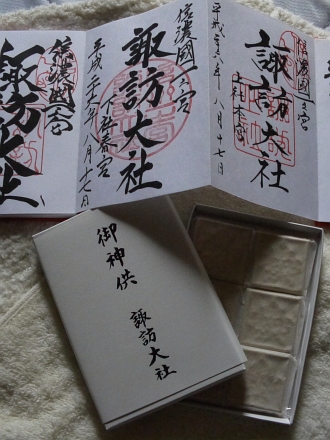 信濃國一之宮
諏訪大社
上社本宮
平成二十六年八月十七日
信濃國一之宮
諏訪大社
下社春宮
平成二十六年八月十七日
信濃國一之宮
諏訪大社
御神供
諏訪大社